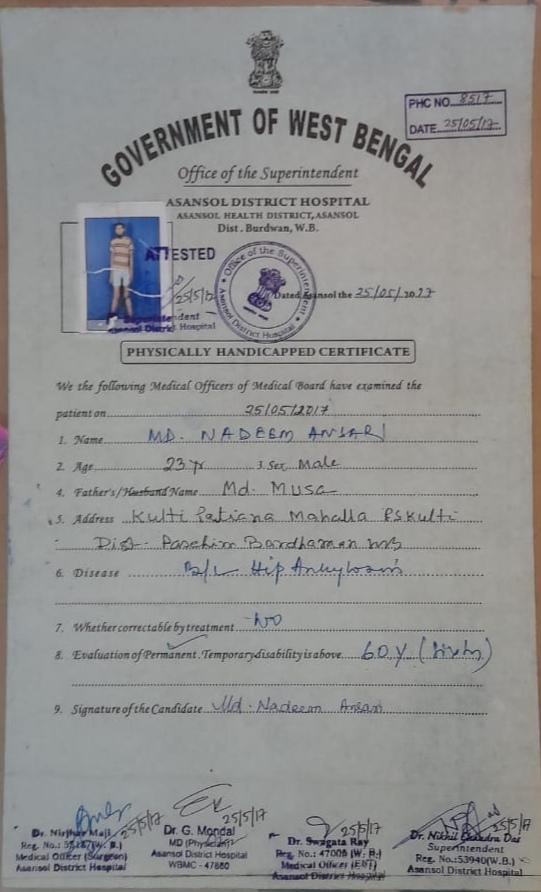 PHC NO. 8517
DATE 25/05/17
GOVERNMENT OF WEST BENGAL
Office of the Superintendent
ASANSOL DISTRICT HOSPITAL
ASANSOL HEALTH DISTRICT, ASANSOL
Dist. Burdwan, W.B.
ATTESTED
25/5/17
Superintendent
Asansol District Hospital
Office of the Superintendent
Asansol District Hospital
Dated Asansol the 25/05/2017
PHYSICALLY HANDICAPPED CERTIFICATE
We the following Medical Officers of Medical Board have examined the
patient on 25/05/2017
1. Name MD. NADEEM ANSARI
2. Age 23 yr 3. Sex Male
4. Father's/Husband Name Md. Musa
5. Address Kulti Mahalla PS Kulti
Dist- Paschim Bardhaman WB
6. Disease B/L Hip Ankylosis
7. Whether correctable by treatment NO
8. Evaluation of Permanent. Temporary disability is above 60% (Sixty)
9. Signature of the Candidate Md. Nadeem Ansari
25/5/17 25/5/17 25/5/17 25/5/17
Dr. Nirjhar Maji
Reg. No.: (W. B.)
Medical Officer (Surgeon)
Asansol District Hospital
Dr. G. Mondal
MD (Physician)
Asansol District Hospital
WBMC - 47680
Dr. Swagata Ray
Reg. No.: 47005 (W. B.)
Medical Officer (ENT)
Asansol District Hospital
Dr. Nikhil Chandra Das
Superintendent
Reg. No.:53940(W.B.)
Asansol District Hospital